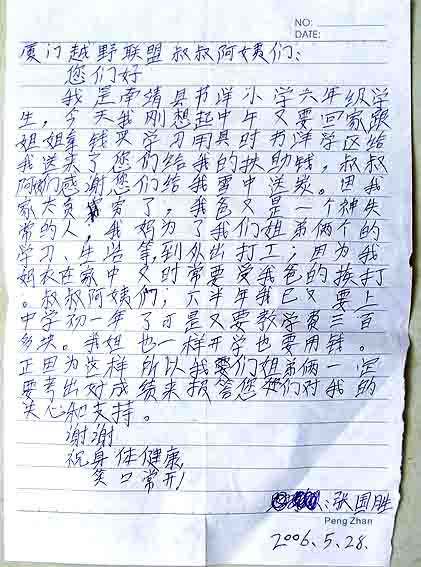 NO:
DATE:
厦门越野联盟叔叔阿姨们:
您们好
我是南靖县书洋小学六年级学
生，今天我刚想起中午又要回家跟
姐姐拿钱买学习用具时书洋学区给
我送来了您们给我的扶助钱，叔叔
阿姨们感谢您们给我雪中送炭。因我
家太贫穷了，我爸又是一个神失
常的人，我妈为了我们姐弟俩个的
学习、生活等,到处出打工;因为我
妈在家中又时常要爱我爸的挨打
。叔叔阿姨们;下半年我已又要上
中学初一年了可是又要教学费三百
多块。我姐也一样开学也要用钱。
正因为这样所以我要们姐弟俩一定
要考出好成绩来报答您们对我的
关心和支持。
谢谢
祝身体健康
笑口常开!
、张国胜
Peng Zhan
2006、5、28、